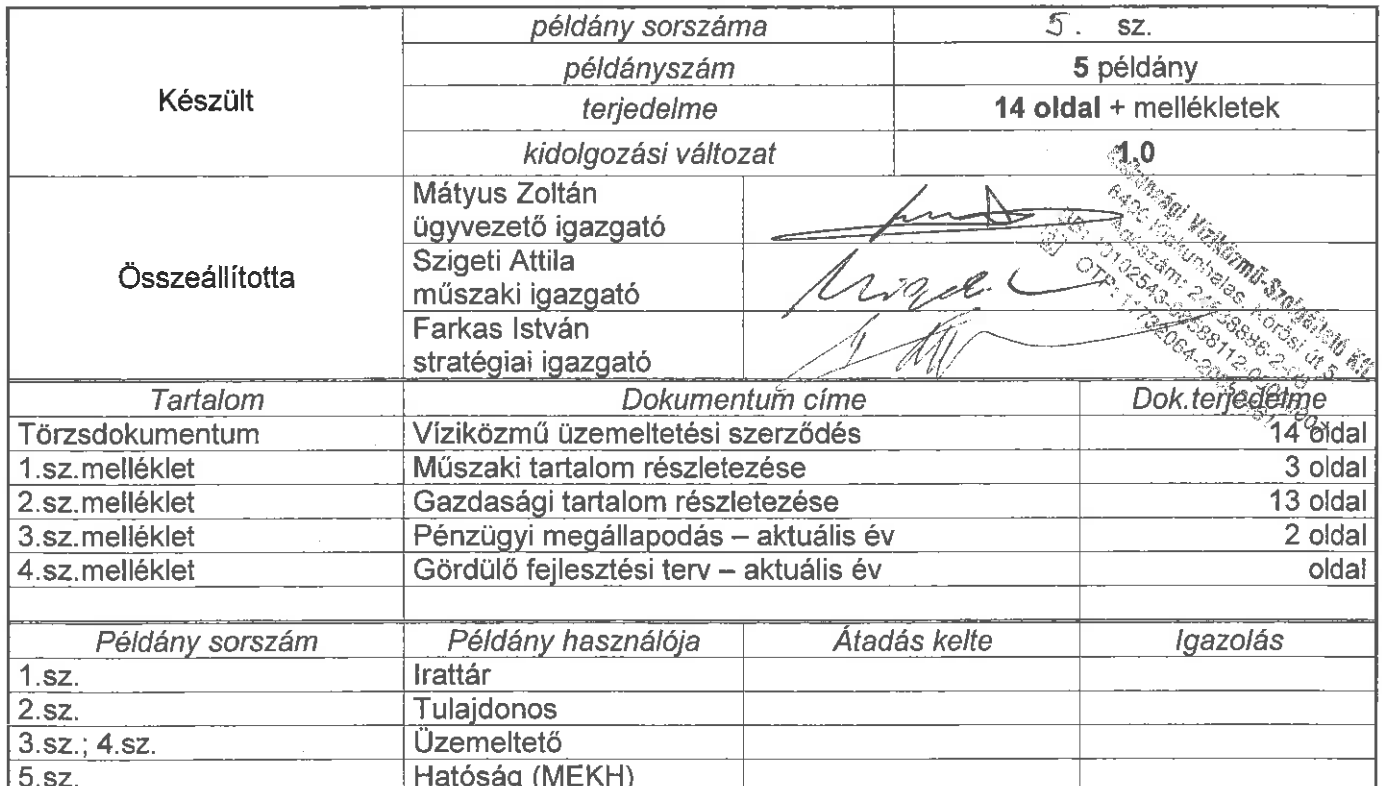 példány sorszáma 5. sz.
példányszám 5 példány
Készült
terjedelme 14 oldal + mellékletek
kidolgozási változat 1.0
Mátyus Zoltán
ügyvezető igazgató
Összeállította
Szigeti Attila
műszaki igazgató
Farkas István
stratégiai igazgató
Víziközmű-Szolgáltató Kft.
Kiskunhalas, Kőrösi út 5.
Tartalom Dokumentum címe Dok.terjedelme
Törzsdokumentum Víziközmű üzemeltetési szerződés 14 oldal
1.sz.melléklet Műszaki tartalom részletezése 3 oldal
2.sz.melléklet Gazdasági tartalom részletezése 13 oldal
3.sz.melléklet Pénzügyi megállapodás – aktuális év 2 oldal
4.sz.melléklet Gördülő fejlesztési terv – aktuális év oldal
Példány sorszám Példány használója Átadás kelte Igazolás
1.sz. Irattár
2.sz. Tulajdonos
3.sz.; 4.sz. Üzemeltető
5.sz. Hatóság (MEKH)